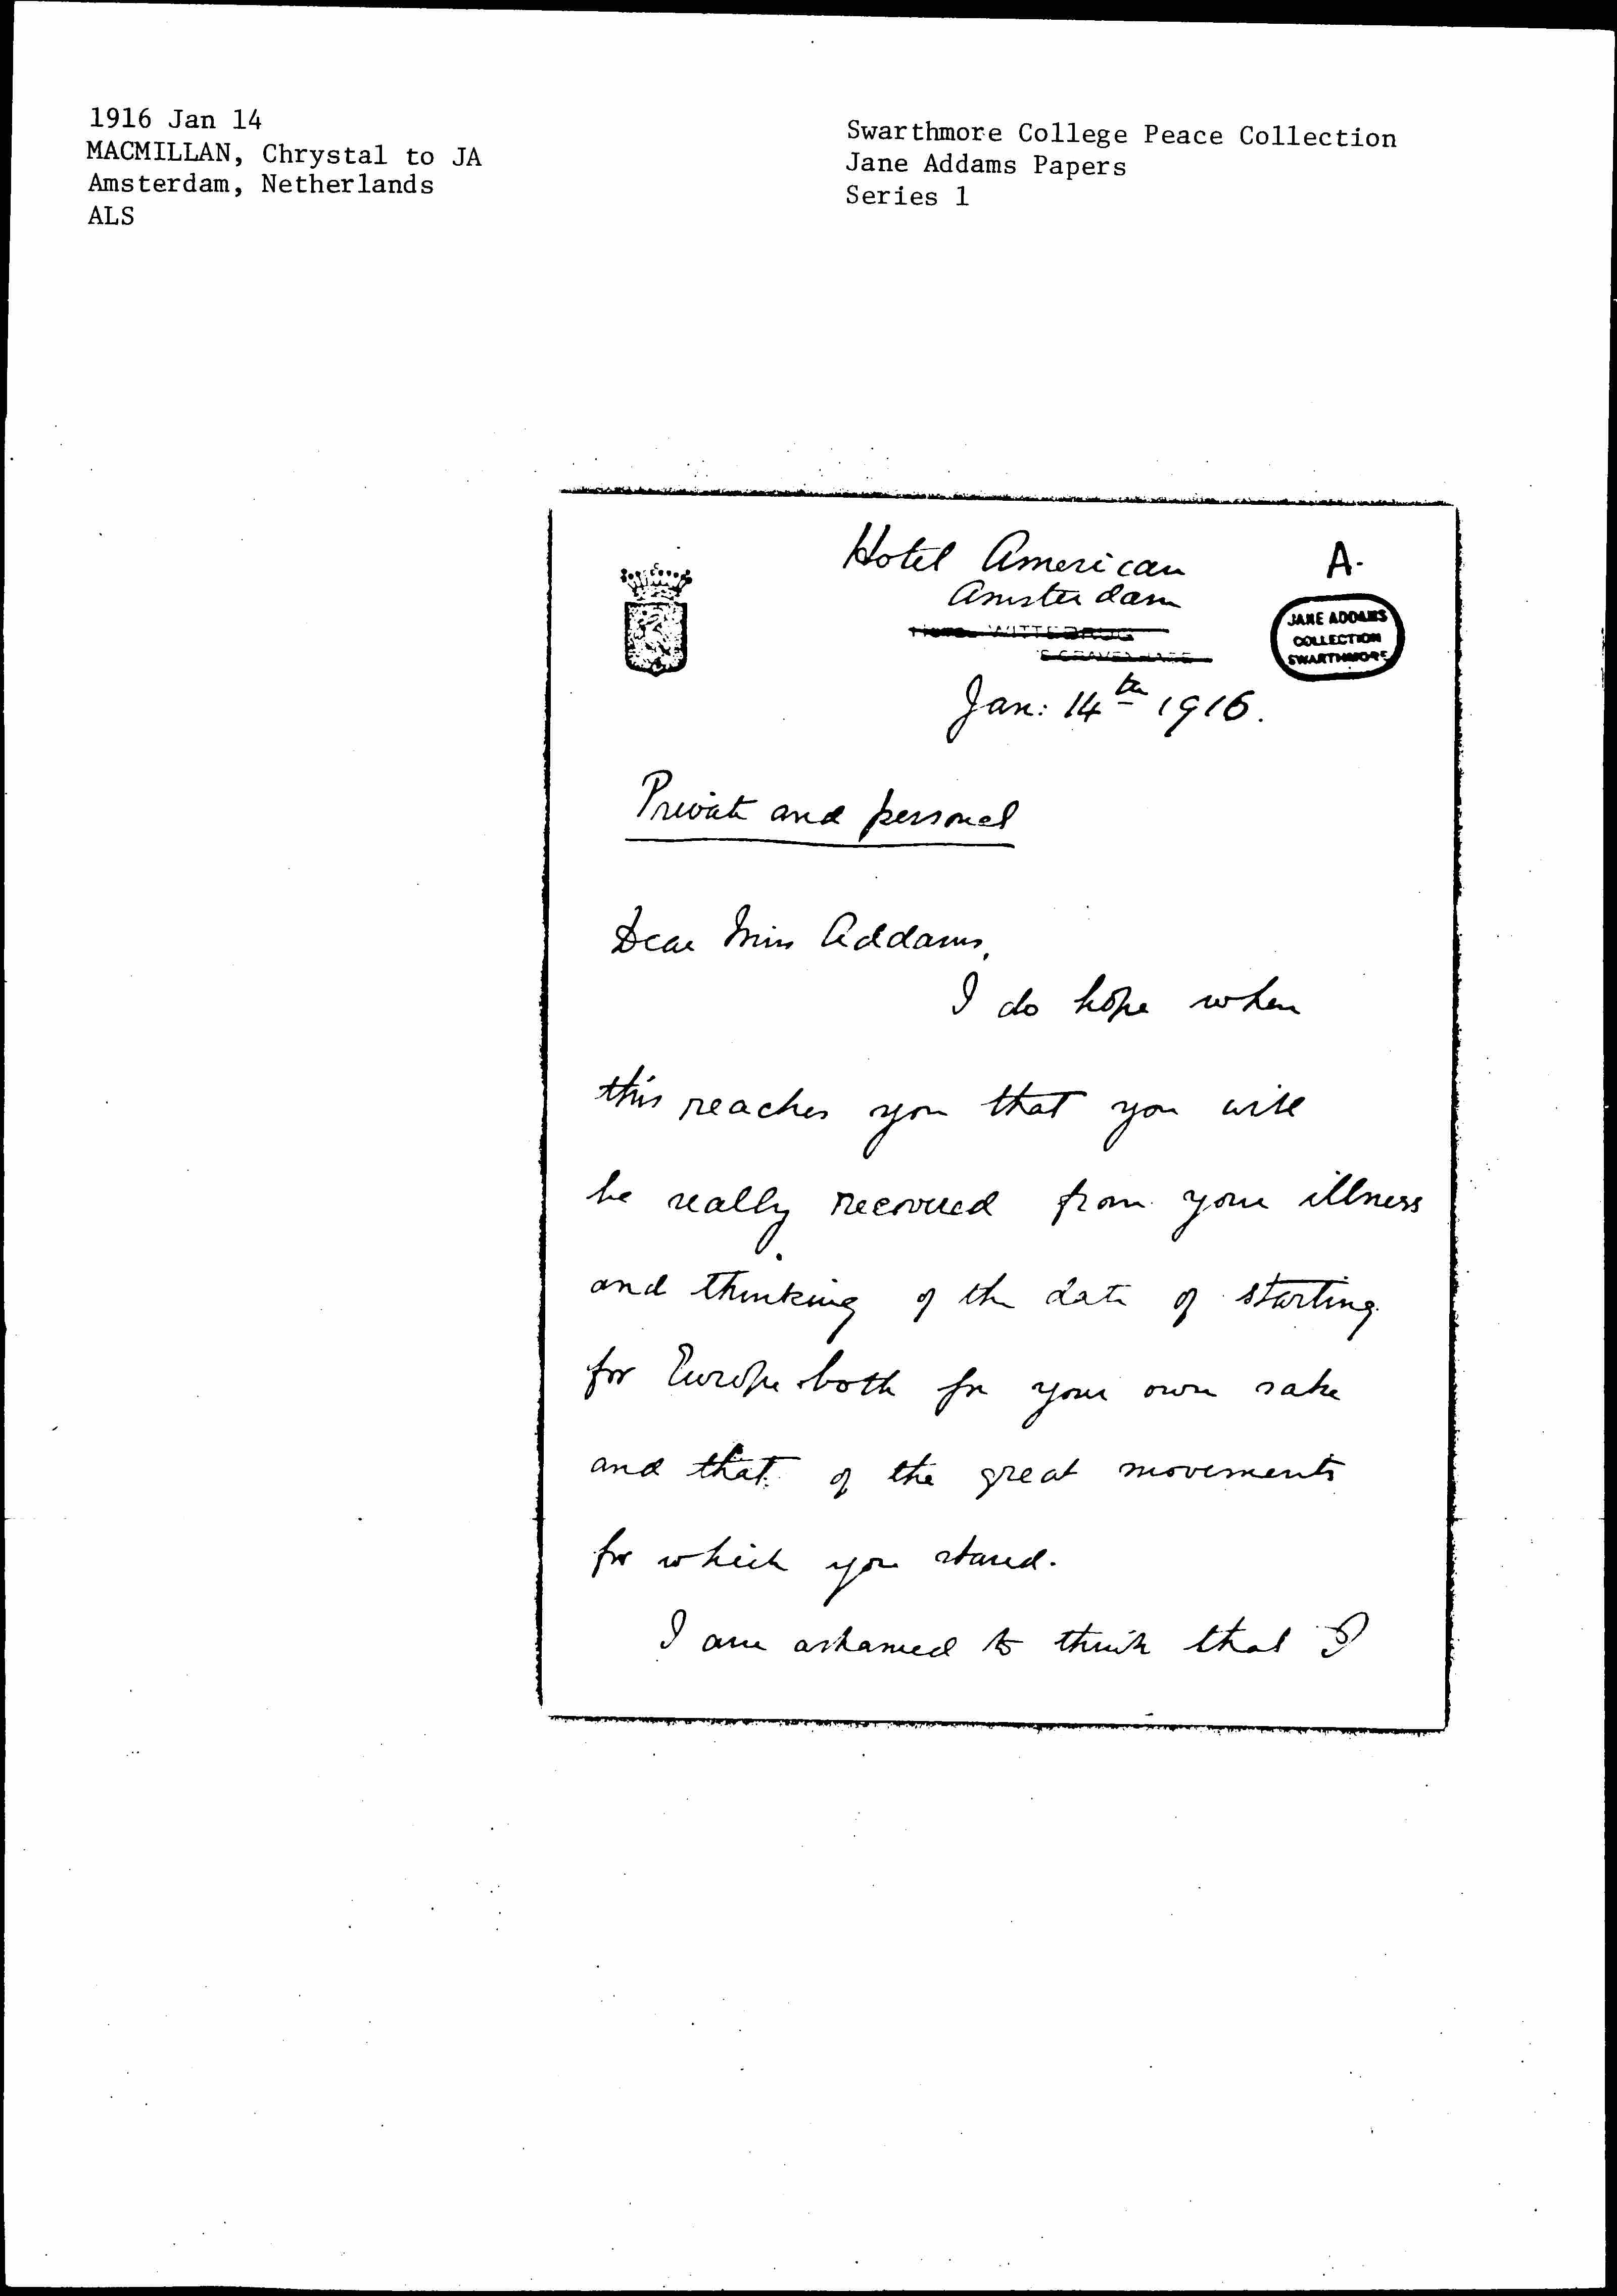 1916 Jan 14
MACMILLAN, Chrystal to JA
Amsterdam, Netherlands
ALS
Swarthmore College Peace Collection
Jane Addams Papers
Series 1
Hotel American
Amsterdam
A.
HOTEL WITTEBRUG
'S GRAVENHAGE
JANE ADDAMS
COLLECTION
SWARTHMORE
Jan: 14th 1916.
Private and personal
Dear Miss Addams,
I do hope when
this reaches you that you will
be really recovered from your illness
and thinking of the date of starting
for Europe both for your own sake
and that of the great movements
for which you stand.
I am ashamed to think that I